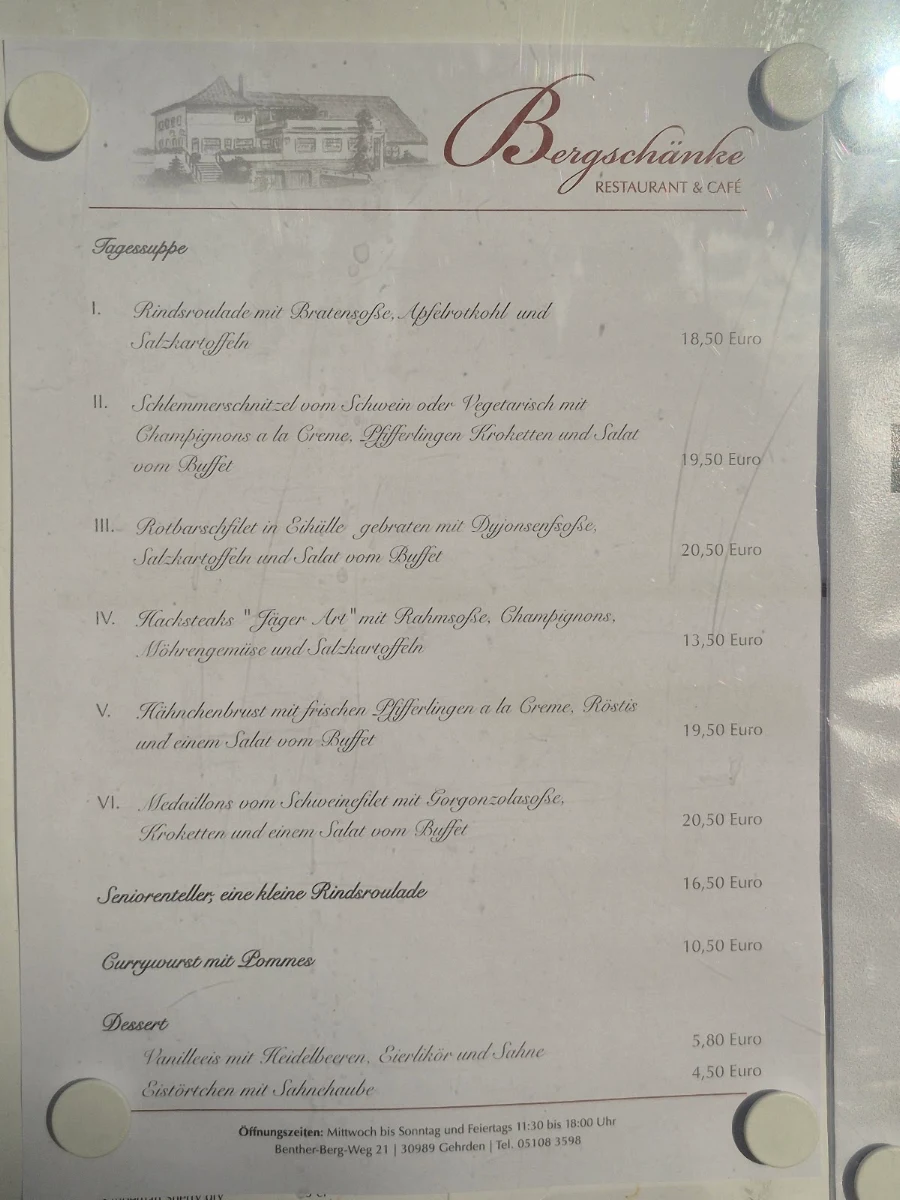 Bergschänke
RESTAURANT & CAFÉ
Tagessuppe
I. Rindsroulade mit Bratensoße, Apfelrotkohl und
Salzkartoffeln 18,50 Euro
II. Schlemmerschnitzel vom Schwein oder Vegetarisch mit
Champignons a la Creme, Pfifferlingen Kroketten und Salat
vom Buffet 19,50 Euro
III. Rotbarschfilet in Eihülle gebraten mit Dyjonsenfsoße,
Salzkartoffeln und Salat vom Buffet 20,50 Euro
IV. Hacksteaks "Jäger Art" mit Rahmsoße, Champignons,
Möhrengemüse und Salzkartoffeln 13,50 Euro
V. Hähnchenbrust mit frischen Pfifferlingen a la Creme, Röstis
und einem Salat vom Buffet 19,50 Euro
VI. Medaillons vom Schweinefilet mit Gorgonzolasoße,
Kroketten und einem Salat vom Buffet 20,50 Euro
Seniorenteller, eine kleine Rindsroulade 16,50 Euro
Currywurst mit Pommes 10,50 Euro
Dessert
Vanilleeis mit Heidelbeeren, Eierlikör und Sahne 5,80 Euro
Eistörtchen mit Sahnehaube 4,50 Euro
Öffnungszeiten: Mittwoch bis Sonntag und Feiertags 11:30 bis 18:00 Uhr
Benther-Berg-Weg 21 | 30989 Gehrden | Tel. 05108 3598